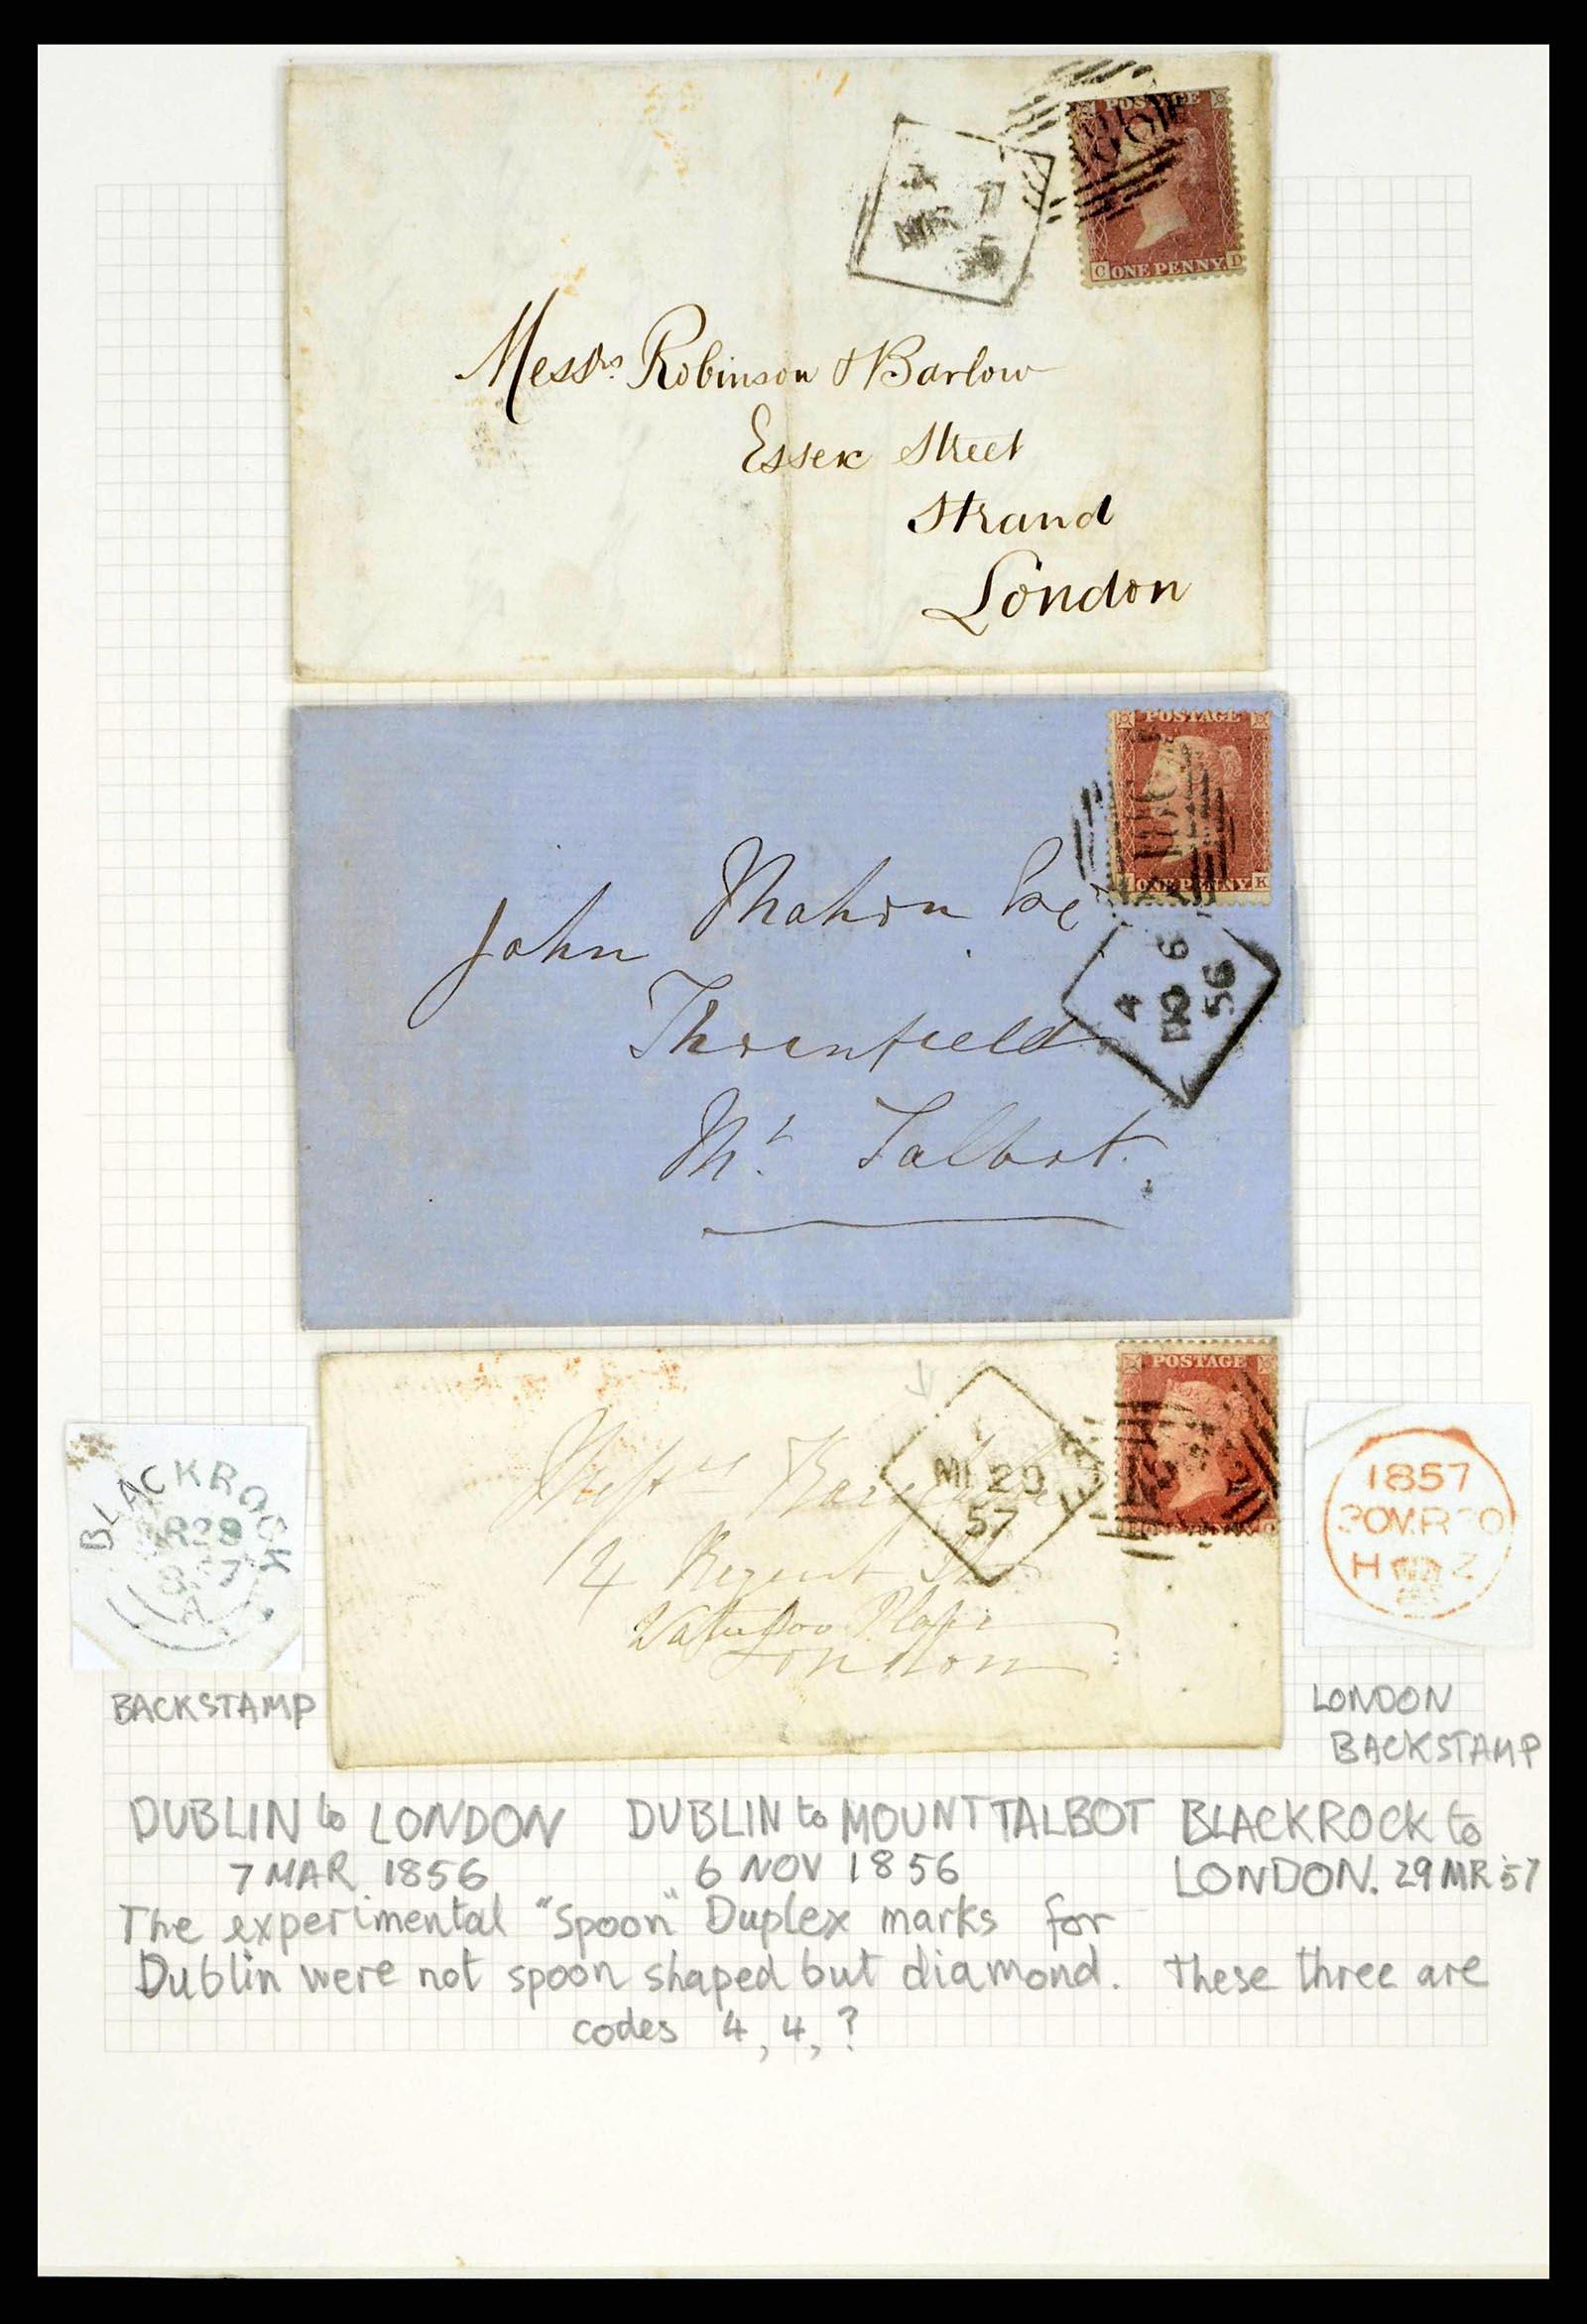 POSTAGE
C ONE PENNY D
4
MAR 7
56
Messrs. Robinson & Barlow
Essex Street
Strand
London
POSTAGE
ONE PENNY K
4
6
56
John Mahon Esq
Thornfield
Mt. Talbot.
POSTAGE
29
57
14 Regent St
Waterloo Place
London
BLACKROCK
R29
A
1857
30MR30
H Z
BACKSTAMP
LONDON
BACKSTAMP
DUBLIN to LONDON
7 MAR. 1856
DUBLIN to MOUNT TALBOT
6 NOV 1856
BLACKROCK to
LONDON. 29 MR 57
The experimental "Spoon" Duplex marks for
Dublin were not spoon shaped but diamond. These three are
codes 4, 4, ?